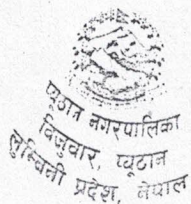 प्यूठान नगरपालिका
विजुवार, प्यूठान
लुम्बिनी प्रदेश, नेपाल